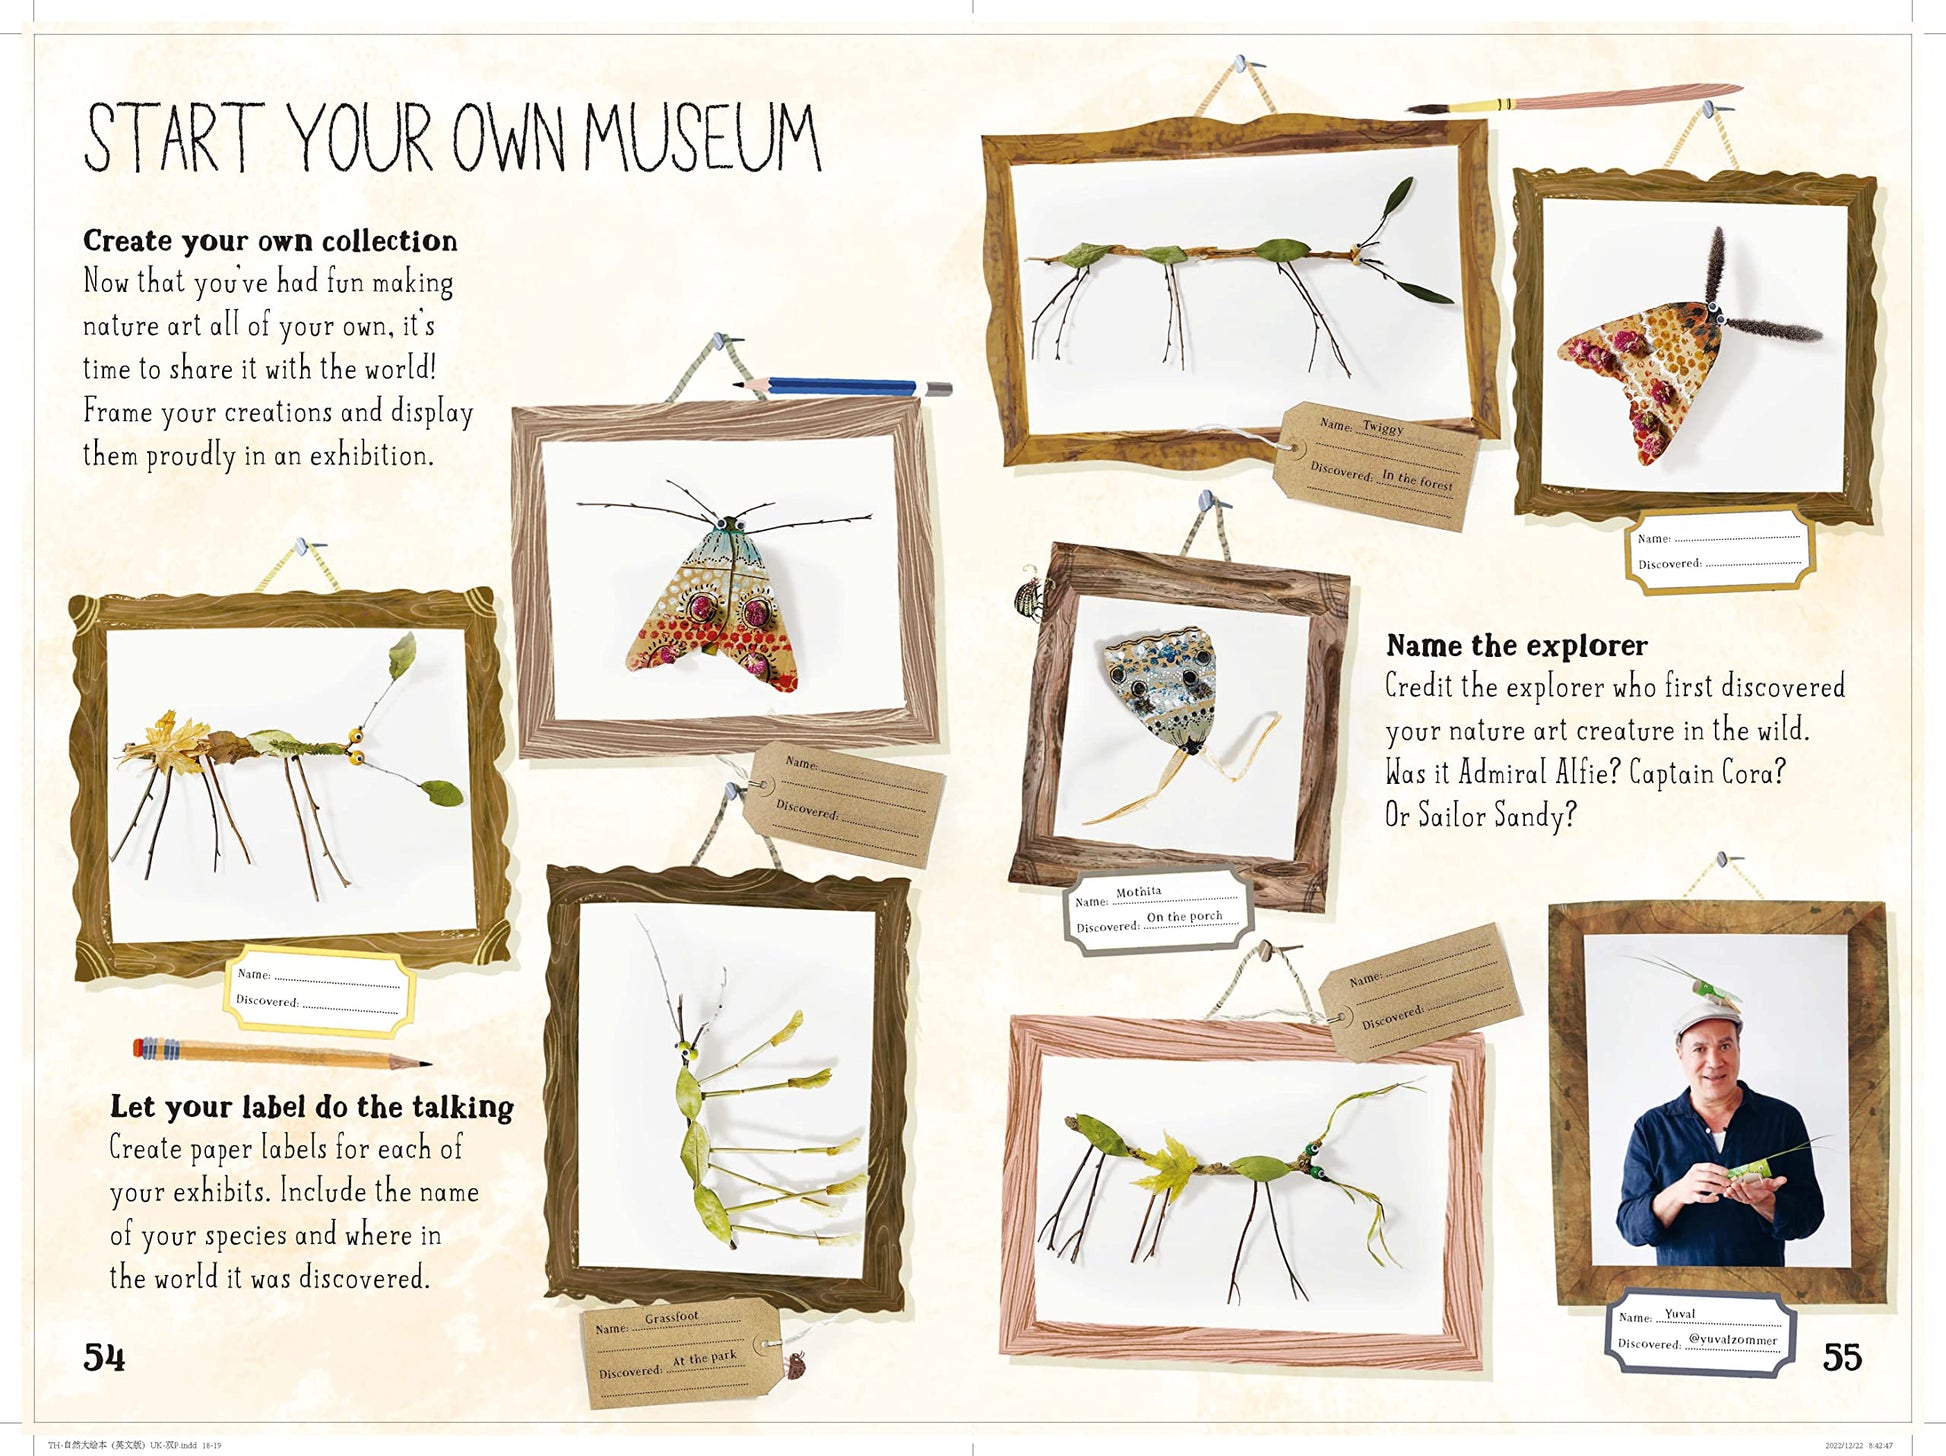 START YOUR OWN MUSEUM
Create your own collection
Now that you've had fun making
nature art all of your own, it's
time to share it with the world!
Frame your creations and display
them proudly in an exhibition.
Name:
Discovered:
Name:
Discovered:
Let your label do the talking
Create paper labels for each of
your exhibits. Include the name
of your species and where in
the world it was discovered.
Name: Grassfoot
Discovered: At the park
54
Name: Twiggy
Discovered: In the forest
Name:
Discovered:
Name the explorer
Credit the explorer who first discovered
your nature art creature in the wild.
Was it Admiral Alfie? Captain Cora?
Or Sailor Sandy?
Name: Mothita
Discovered: On the porch
Name:
Discovered:
Name: Yuval
Discovered: @yuvalzommer
55
TH-自然大绘本 (英文版) UK-双P.indd 18-19
2022/12/22 8:42:47